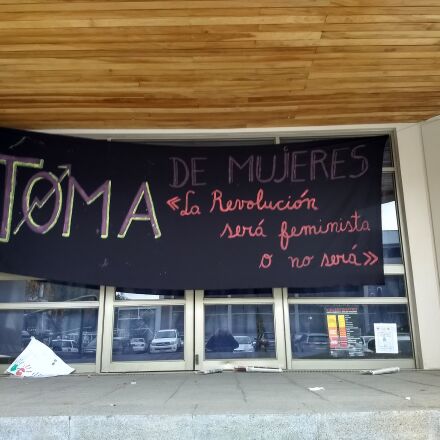 TOMA
DE MUJERES
«La Revolución
será feminista
o no será»